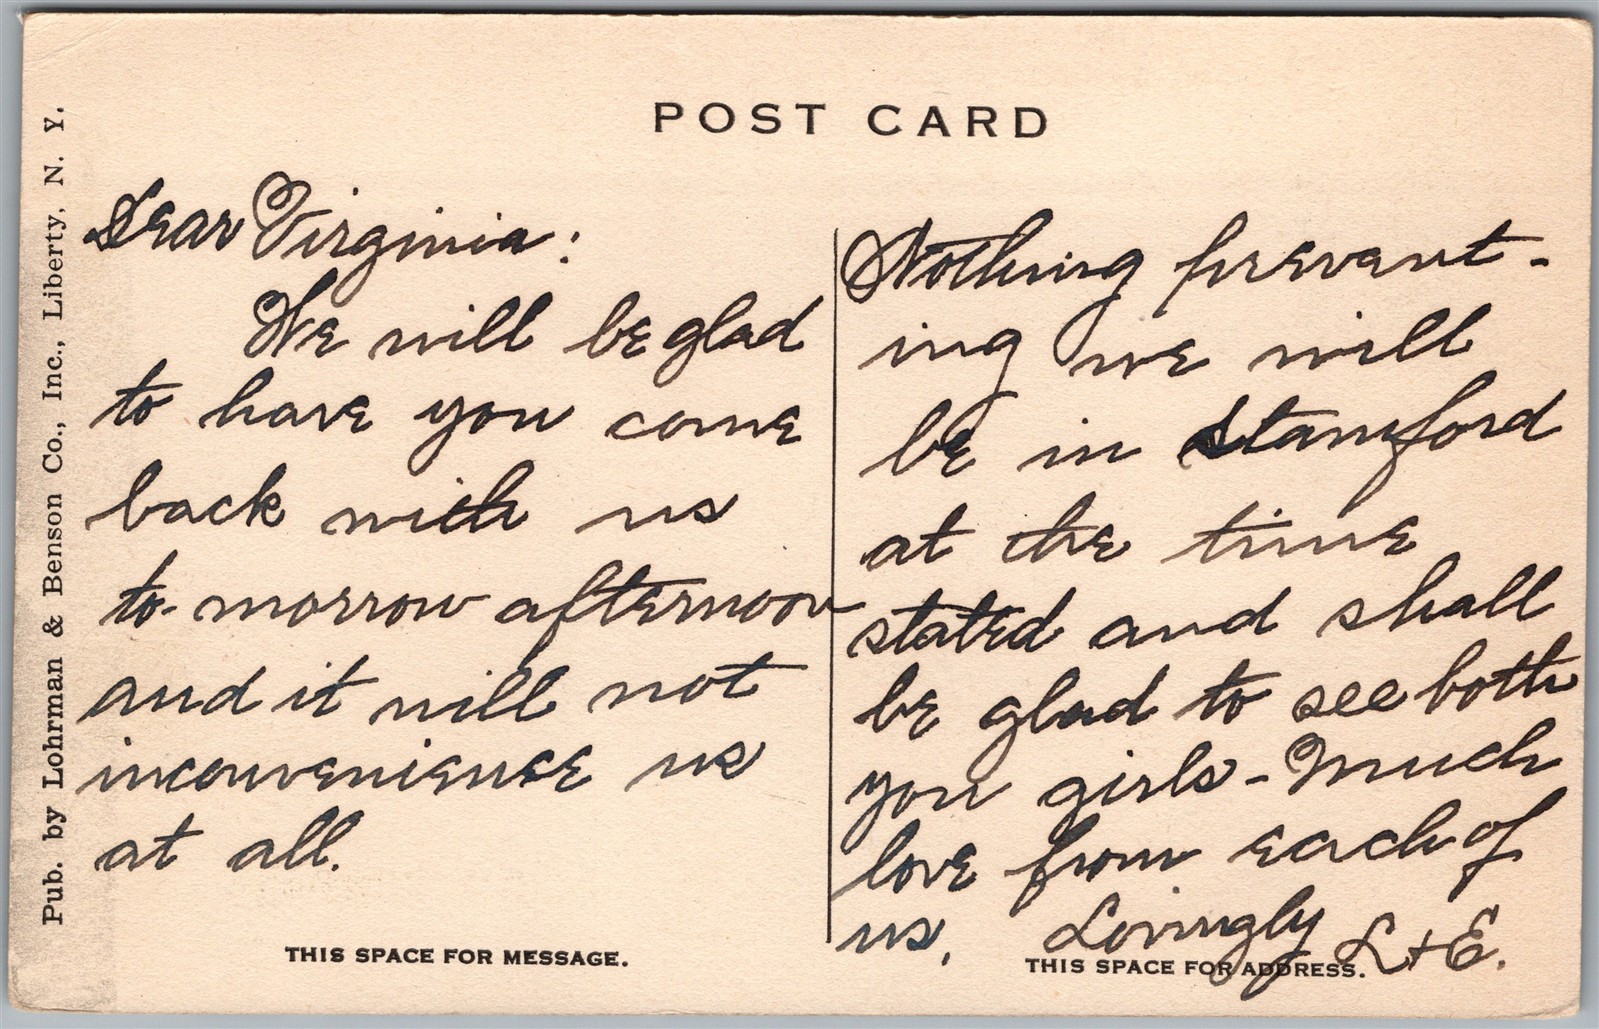 POST CARD
Pub. by Lohrman & Benson Co., Inc., Liberty, N. Y.
Dear Virginia:
We will be glad
to have you come
back with us
to-morrow afternoon
and it will not
inconvenience us
at all.
THIS SPACE FOR MESSAGE.
Nothing prevent-
ing we will
be in Stamford
at the time
stated and shall
be glad to see both
you girls - Much
love from each of
us. Lovingly L + E.
THIS SPACE FOR ADDRESS.